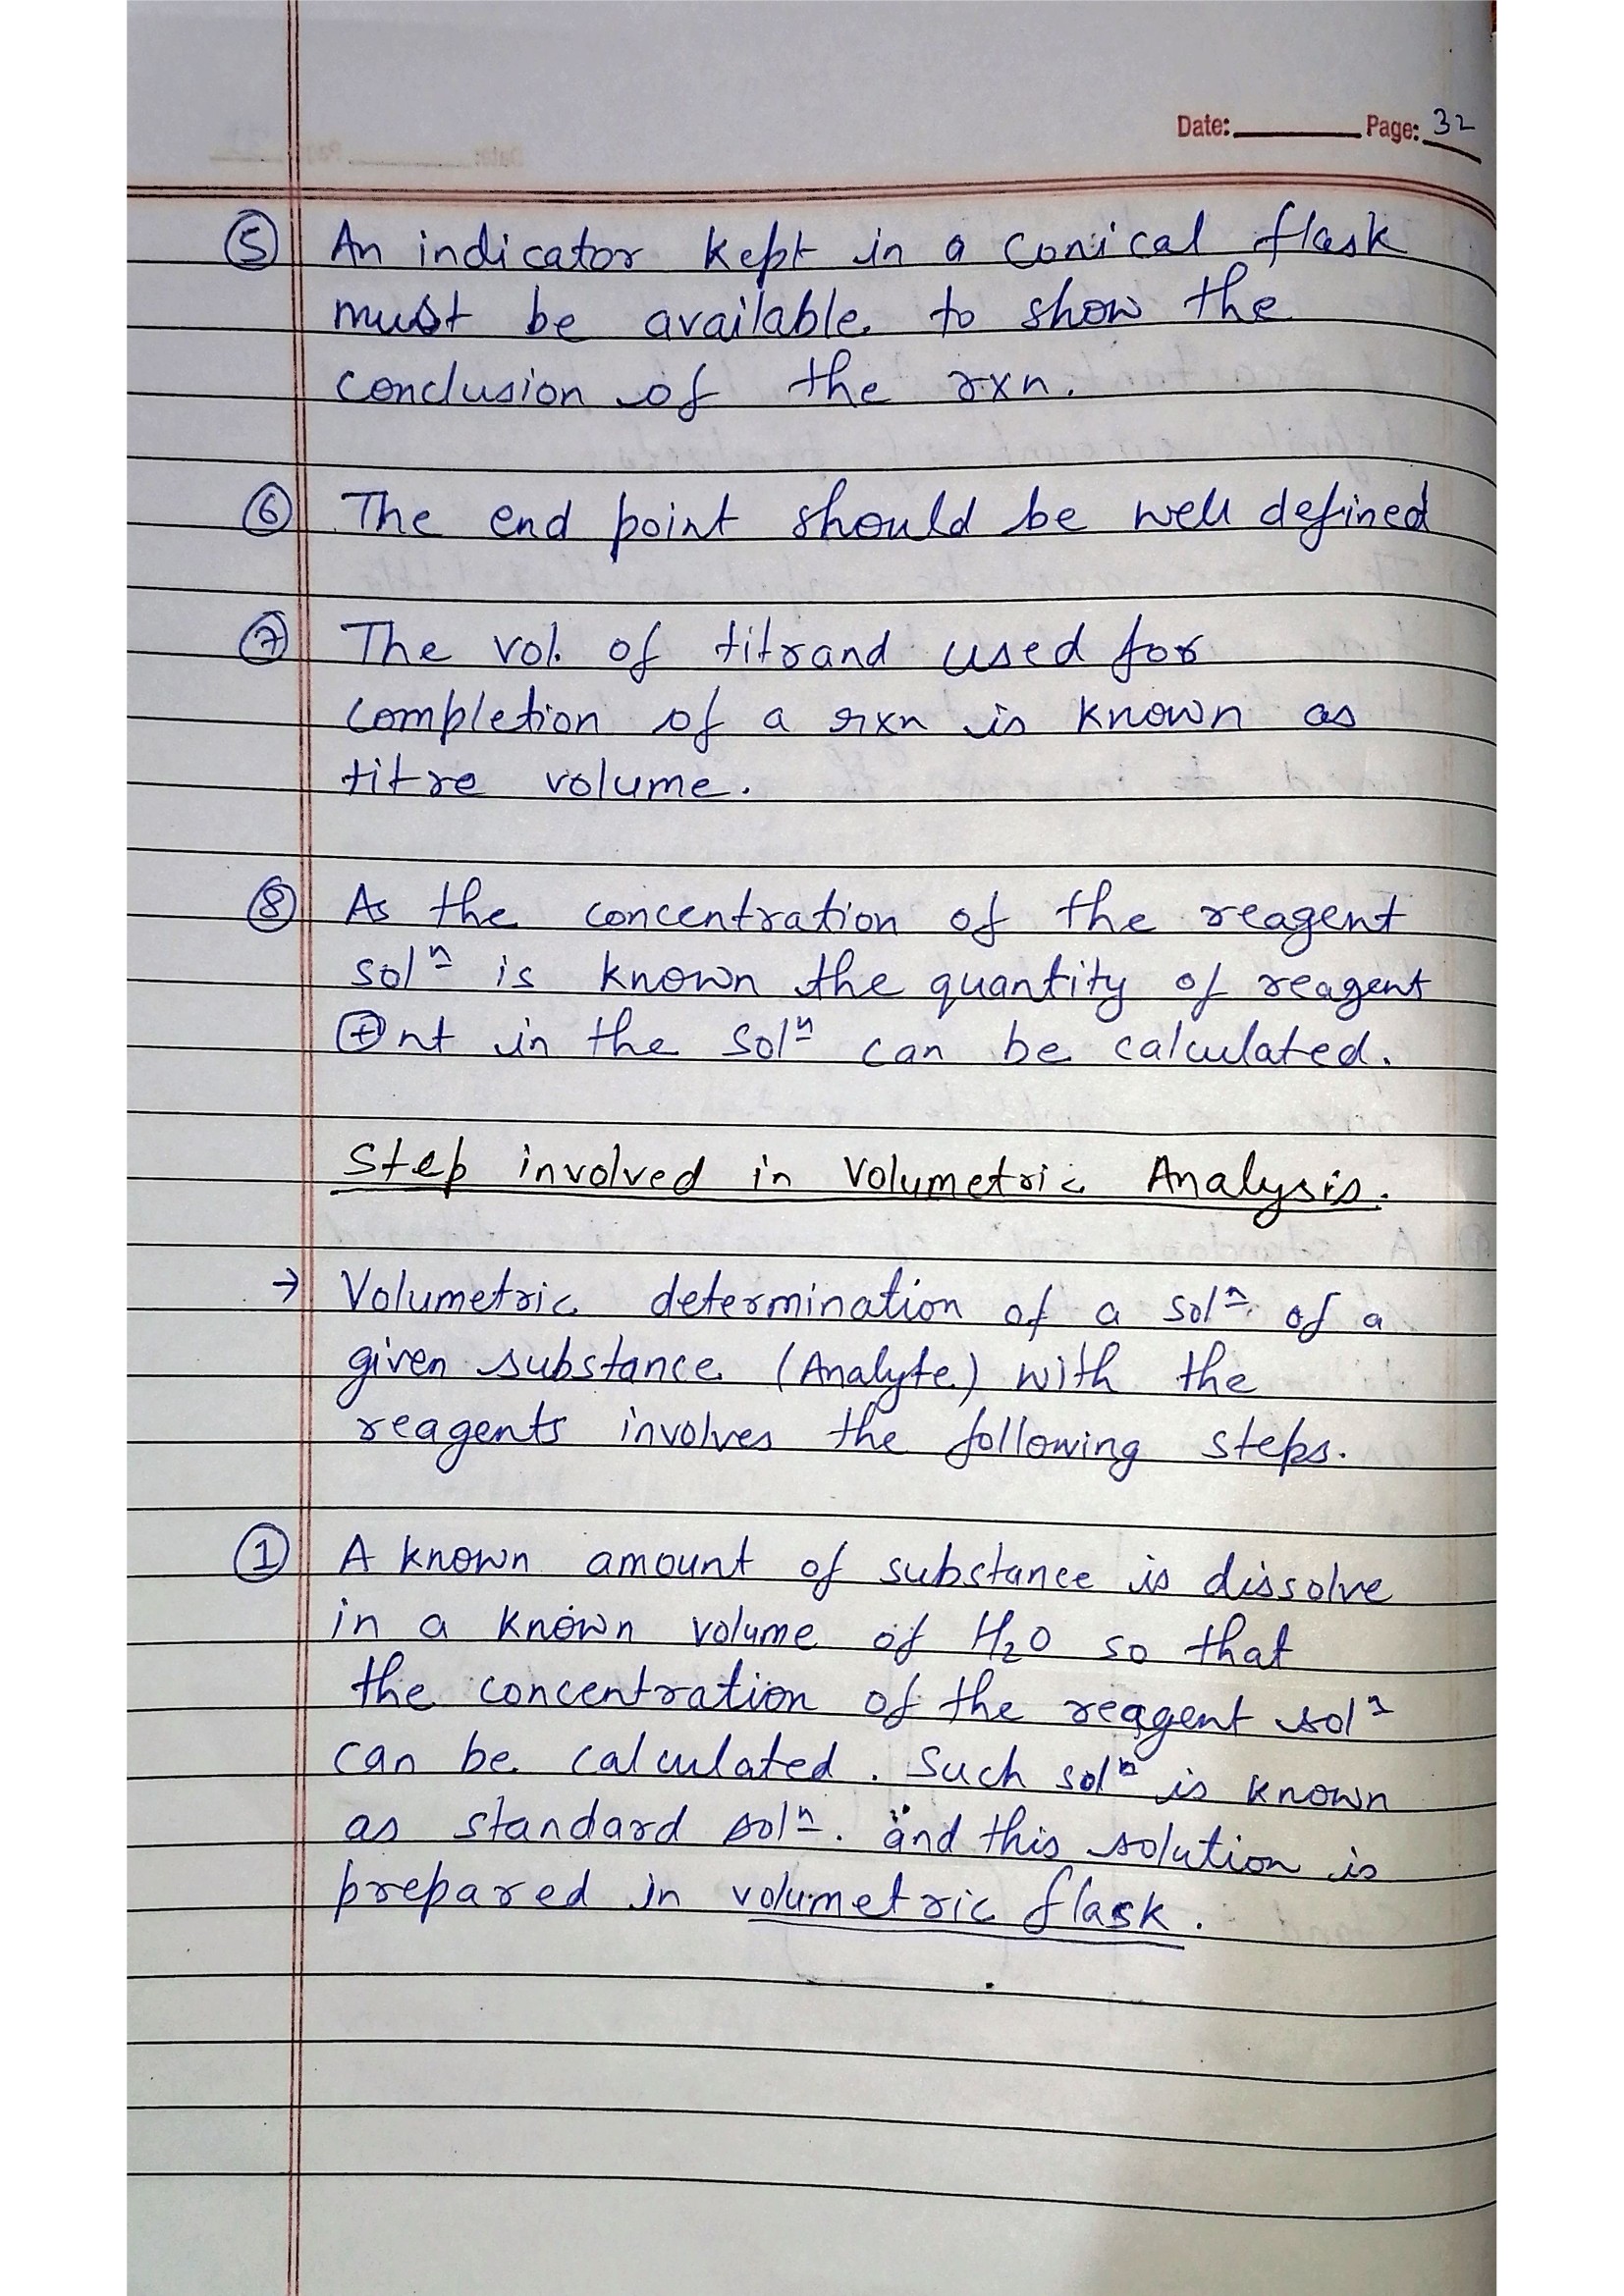 Date: Page: 32
⑤ An indicator kept in a conical flask
must be available. to show the
conclusion of the rxn.
⑥ The end point should be well defined
⑦ The vol. of titrand used for
completion of a rxn is known as
titre volume.
⑧ As the concentration of the reagent
solⁿ is known the quantity of reagent
⊕nt in the solⁿ can be calculated.
Step involved in Volumetric Analysis.
→ Volumetric determination of a solⁿ. of a
given substance (Analyte) with the
reagents involves the following steps.
① A known amount of substance is dissolve
in a known volume of H₂O so that
the concentration of the reagent solⁿ
can be calculated. Such solⁿ is known
as standard solⁿ. and this solution is
prepared in volumetric flask.